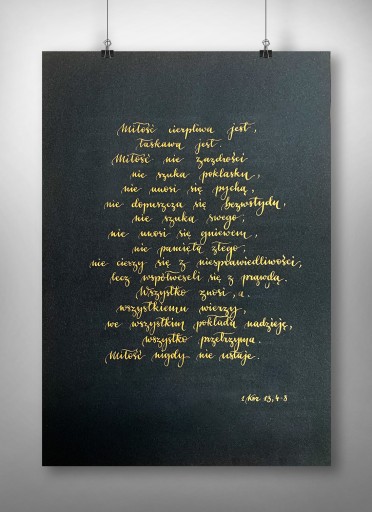 Miłość cierpliwa jest,
łaskawa jest.
Miłość nie zazdrości
nie szuka poklasku,
nie unosi się pychą,
nie dopuszcza się bezwstydu,
nie szuka swego,
nie unosi się gniewem,
nie pamięta złego;
nie cieszy się z niesprawiedliwości,
lecz współweseli się z prawdą.
Wszystko znosi,
wszystkiemu wierzy,
we wszystkim pokłada nadzieję,
wszystko przetrzyma.
Miłość nigdy nie ustaje.
1 Kor 13, 4-8